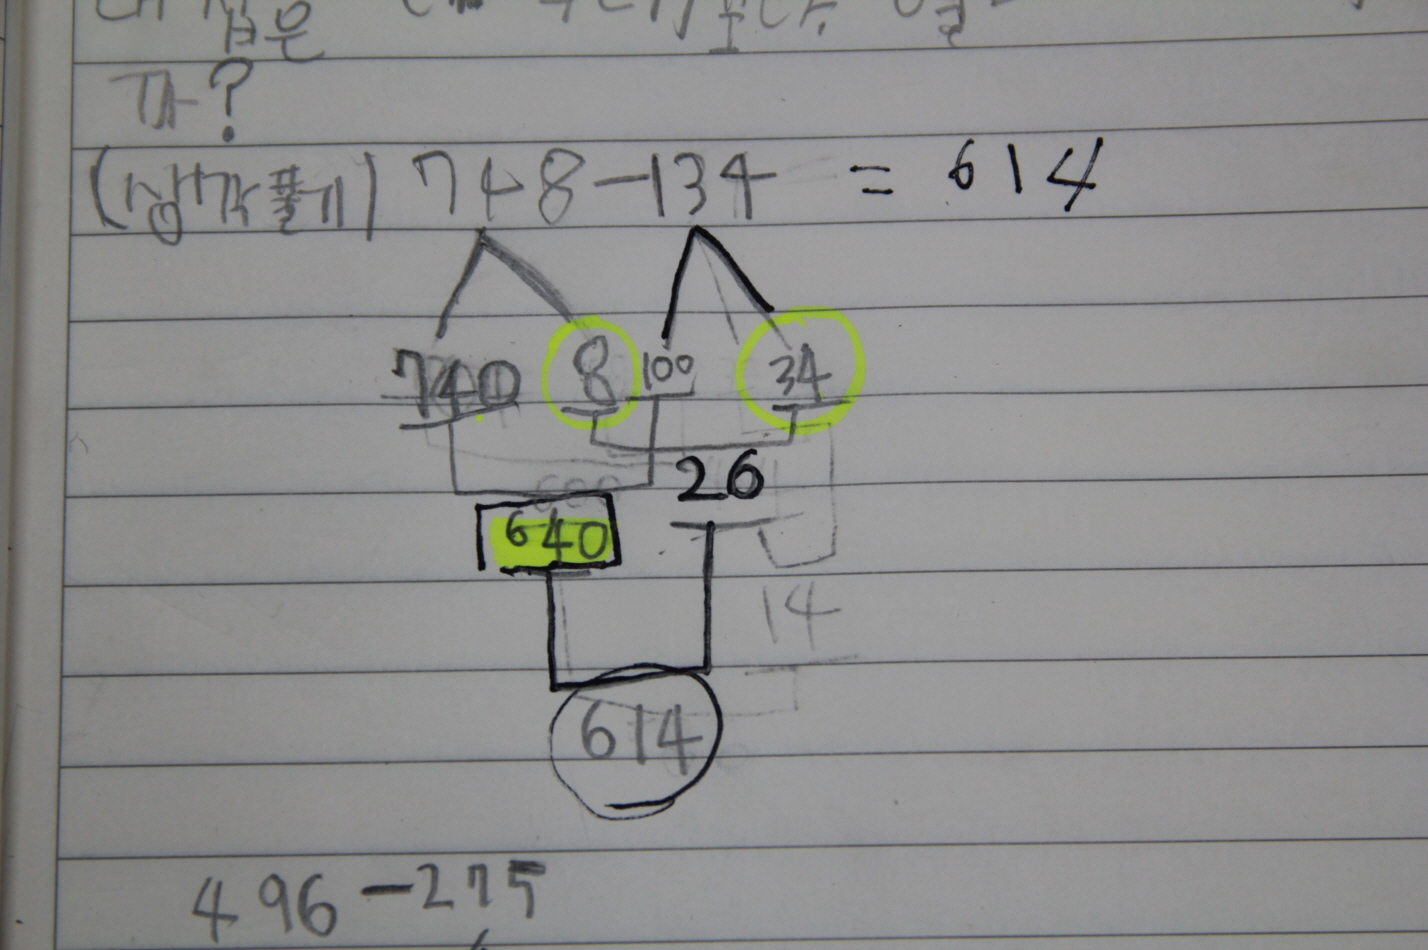 까?
(생각풀기) 748-134 = 614
740 8 100 34
26
640
14
614
496-275